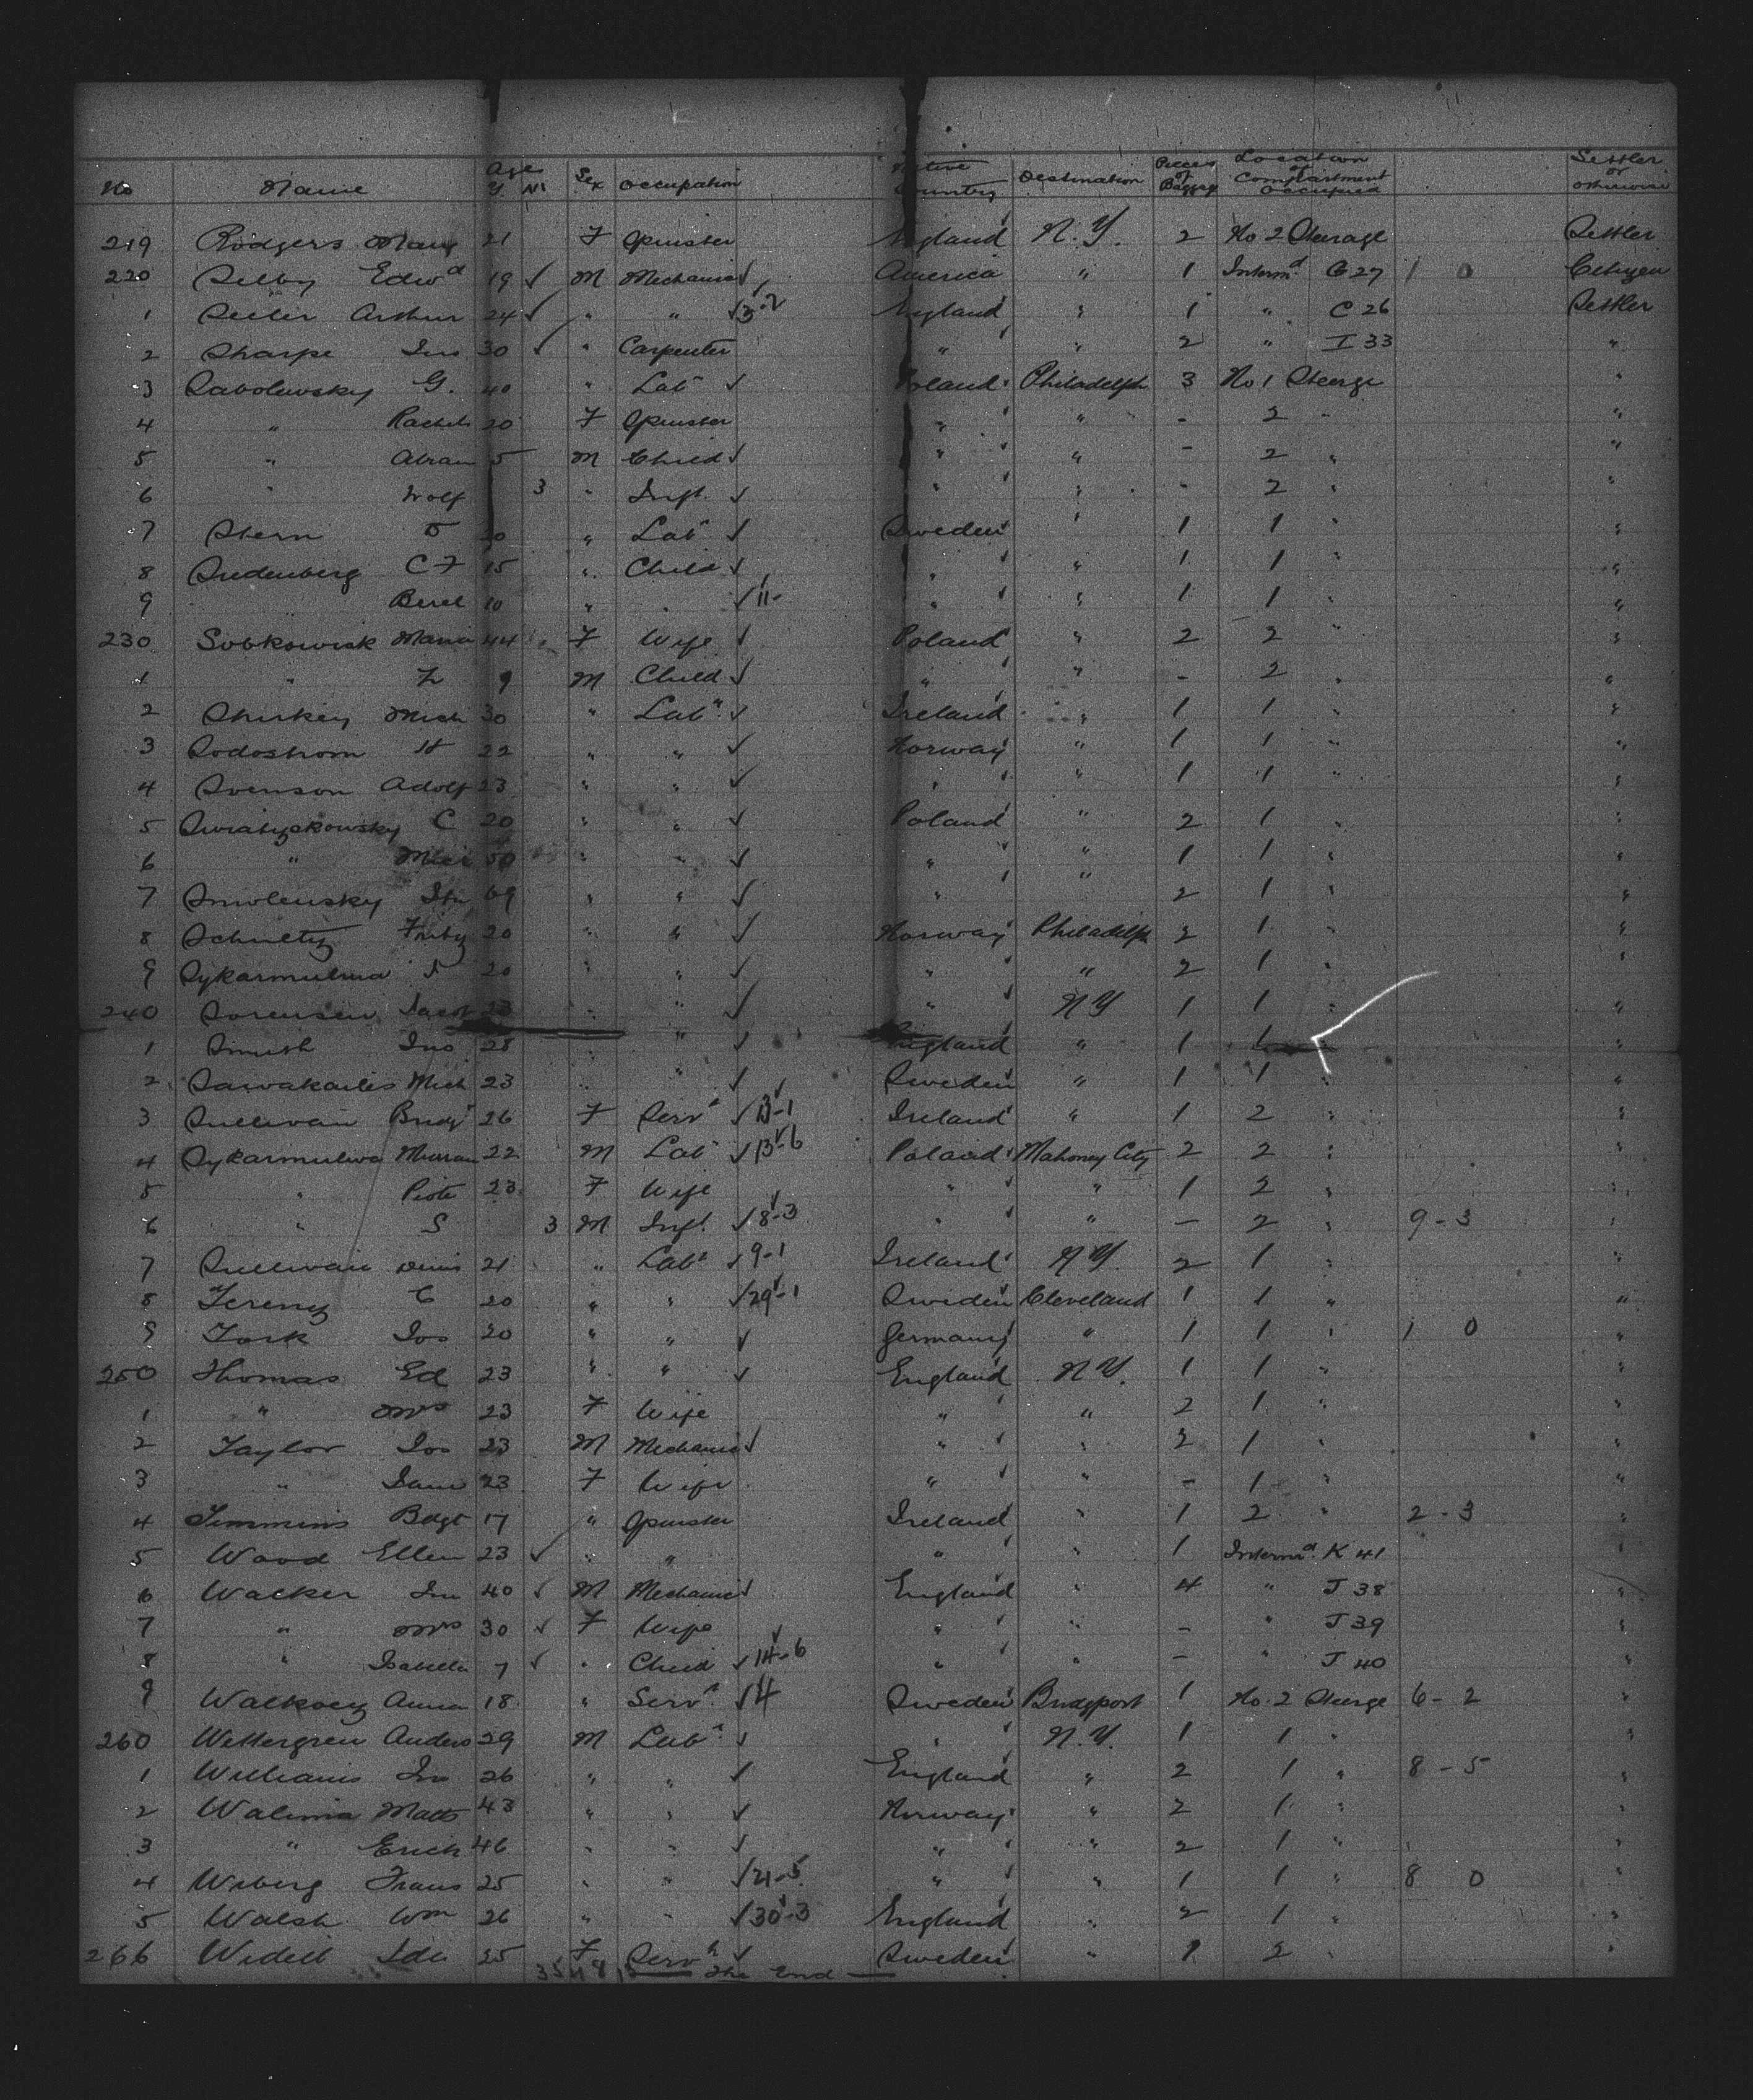 No Name Age Y. M Sex Occupation Native Country Destination Pieces of Baggage Location of Compartment Occupied Settler or Otherwise
219 Rodgers Mary 21 F Spinster England N.Y. 2 No 2 Steerage Settler
220 Selby Edwd 19 ✓ M Mechanic ✓ America " 1 Intermd G27 1 0 Citizen
1 Arthur 24 ✓ " " ✓ 3-2 England " 1 " C 26 Settler
2 Sharpe Jno 30 ✓ " Carpenter " " 2 " I 33 "
3 Sabolewsky G. 40 " Labr ✓ Poland Philadelph 3 No 1 Steerge "
4 " Rachel 20 F Spinster " " - 2 " "
5 " Abram 5 M Child ✓ " " - 2 " "
6 " Wolf 3 " Inft. ✓ " " - 2 " "
7 Stern O 30 " Labr ✓ Sweden " 1 1 " "
8 Sudenberg C F 15 " Child ✓ " " 1 1 " "
9 " Berel 10 " " ✓ 11- " " 1 1 " "
230 Sobkowisk Maria 44 F Wife ✓ Poland " 2 2 " "
1 " 9 M Child ✓ " " - 2 " "
2 Shirkey Mich 30 " Labr ✓ Ireland " 1 1 " "
3 Sodostrom H 22 " " ✓ Norway " 1 1 " "
4 Svenson Adolf 23 " " ✓ " " 1 1 " "
5 Swiatyskowsky C 20 " " ✓ Poland " 2 1 " "
6 " 50 " " ✓ " " 1 1 " "
7 Smolensky 69 " " ✓ " " 2 1 " "
8 Schultz Fritz 20 " " ✓ Norway Philadelph 2 1 " "
9 Sykarmulwa J 20 " " ✓ " " 2 1 " "
240 Sorensen Jacob 23 " " ✓ " N Y 1 1 " "
1 Smith Jno 28 " " ✓ England " 1 1 "
2 Sawakailis Mich 23 " " ✓ Sweden " 1 1 " "
3 Sullivan Bridgt 26 F Servt ✓ 13-1 Ireland " 1 2 " "
4 Sykarmulwa 22 M Labr ✓ 13-6 Poland Mahoney City 2 2 " "
5 " Piote 23 F Wife " " 1 2 " "
6 " S 3 M Inft. ✓ 8-3 " " - 2 " 9-3 "
7 Sullivan Denis 21 " Labr ✓ 9-1 Ireland N Y. 2 1 " "
8 Tereny C 20 " " ✓ 29-1 Sweden Cleveland 1 1 " "
9 Tark Jos 20 " " ✓ Germany " 1 1 " 1 0 "
250 Thomas Ed 23 " " ✓ England N Y. 1 1 " "
1 " Mrs 23 F Wife " " 2 1 " "
2 Taylor Jos 23 M Mechanic ✓ " " 2 1 " "
3 " 23 F Wife " " - 1 " "
4 Timmins Bdgt 17 " Spinster Ireland " 1 2 " 2-3 "
5 Wood Ellen 23 ✓ " " " " 1 Intermd. K 41 "
6 Walker Jno 40 ✓ M Mechanic ✓ England " 4 " J 38 "
7 " Mrs 30 ✓ F Wife " " - " J 39 "
8 " Isabella 7 ✓ " Child ✓ 14-6 " " - " J 40 "
9 Walkoey Anna 18 " Servt. ✓ 4 Sweden Bridgport 1 No. 2 Steerge 6-2 "
260 Wettergren Anders 29 M Labr. ✓ " N.Y. 1 1 " "
1 Williams Jno 26 " " ✓ England " 2 1 " 8-5 "
2 Walima Matts 43 " " ✓ Norway " 2 1 " "
3 " Erick 46 " " ✓ " " 2 1 " "
4 Wiberg Frans 25 " " ✓ 21-5 " " 1 1 " 8 0 "
5 Walsh Wm 26 " " ✓ 30-3 England " 2 1 " "
266 Widell Ida 25 F Servt ✓ Sweden " 1 2 " "
The End